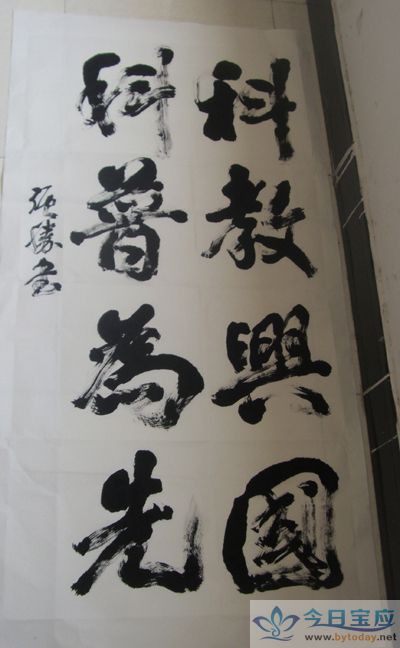 科教興國
科普為先
今日宝应
www.bytoday.net